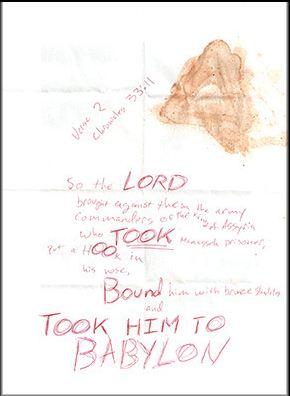 Verse 2
Chronicles 33:11
So the LORD
brought against them the army
commanders of the king of Assyria
who TOOK Manasseh prisoner,
put a HOOk in
his nose,
Bound him with bronze shackles
and
TOOK HIM TO
BABYLON